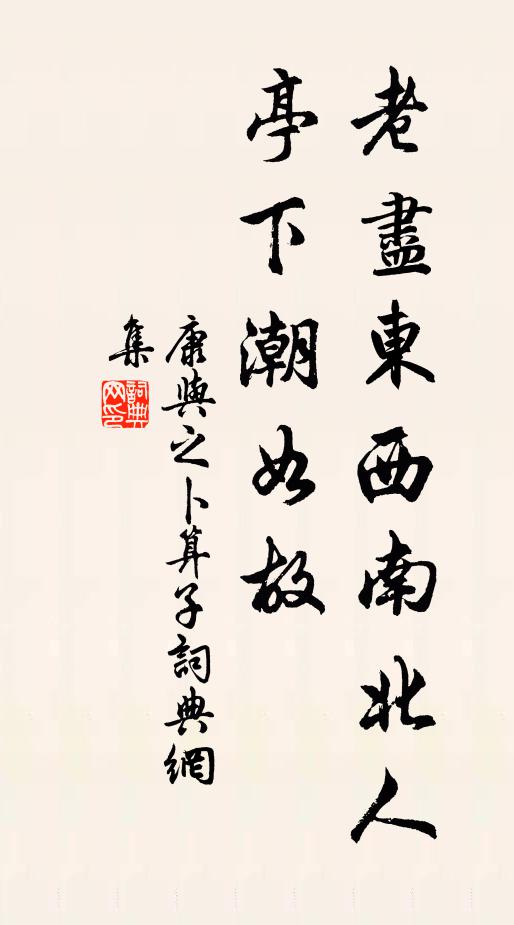 老盡東西南北人
亭下潮如故
康與之卜算子詞典網
集
詞典網印